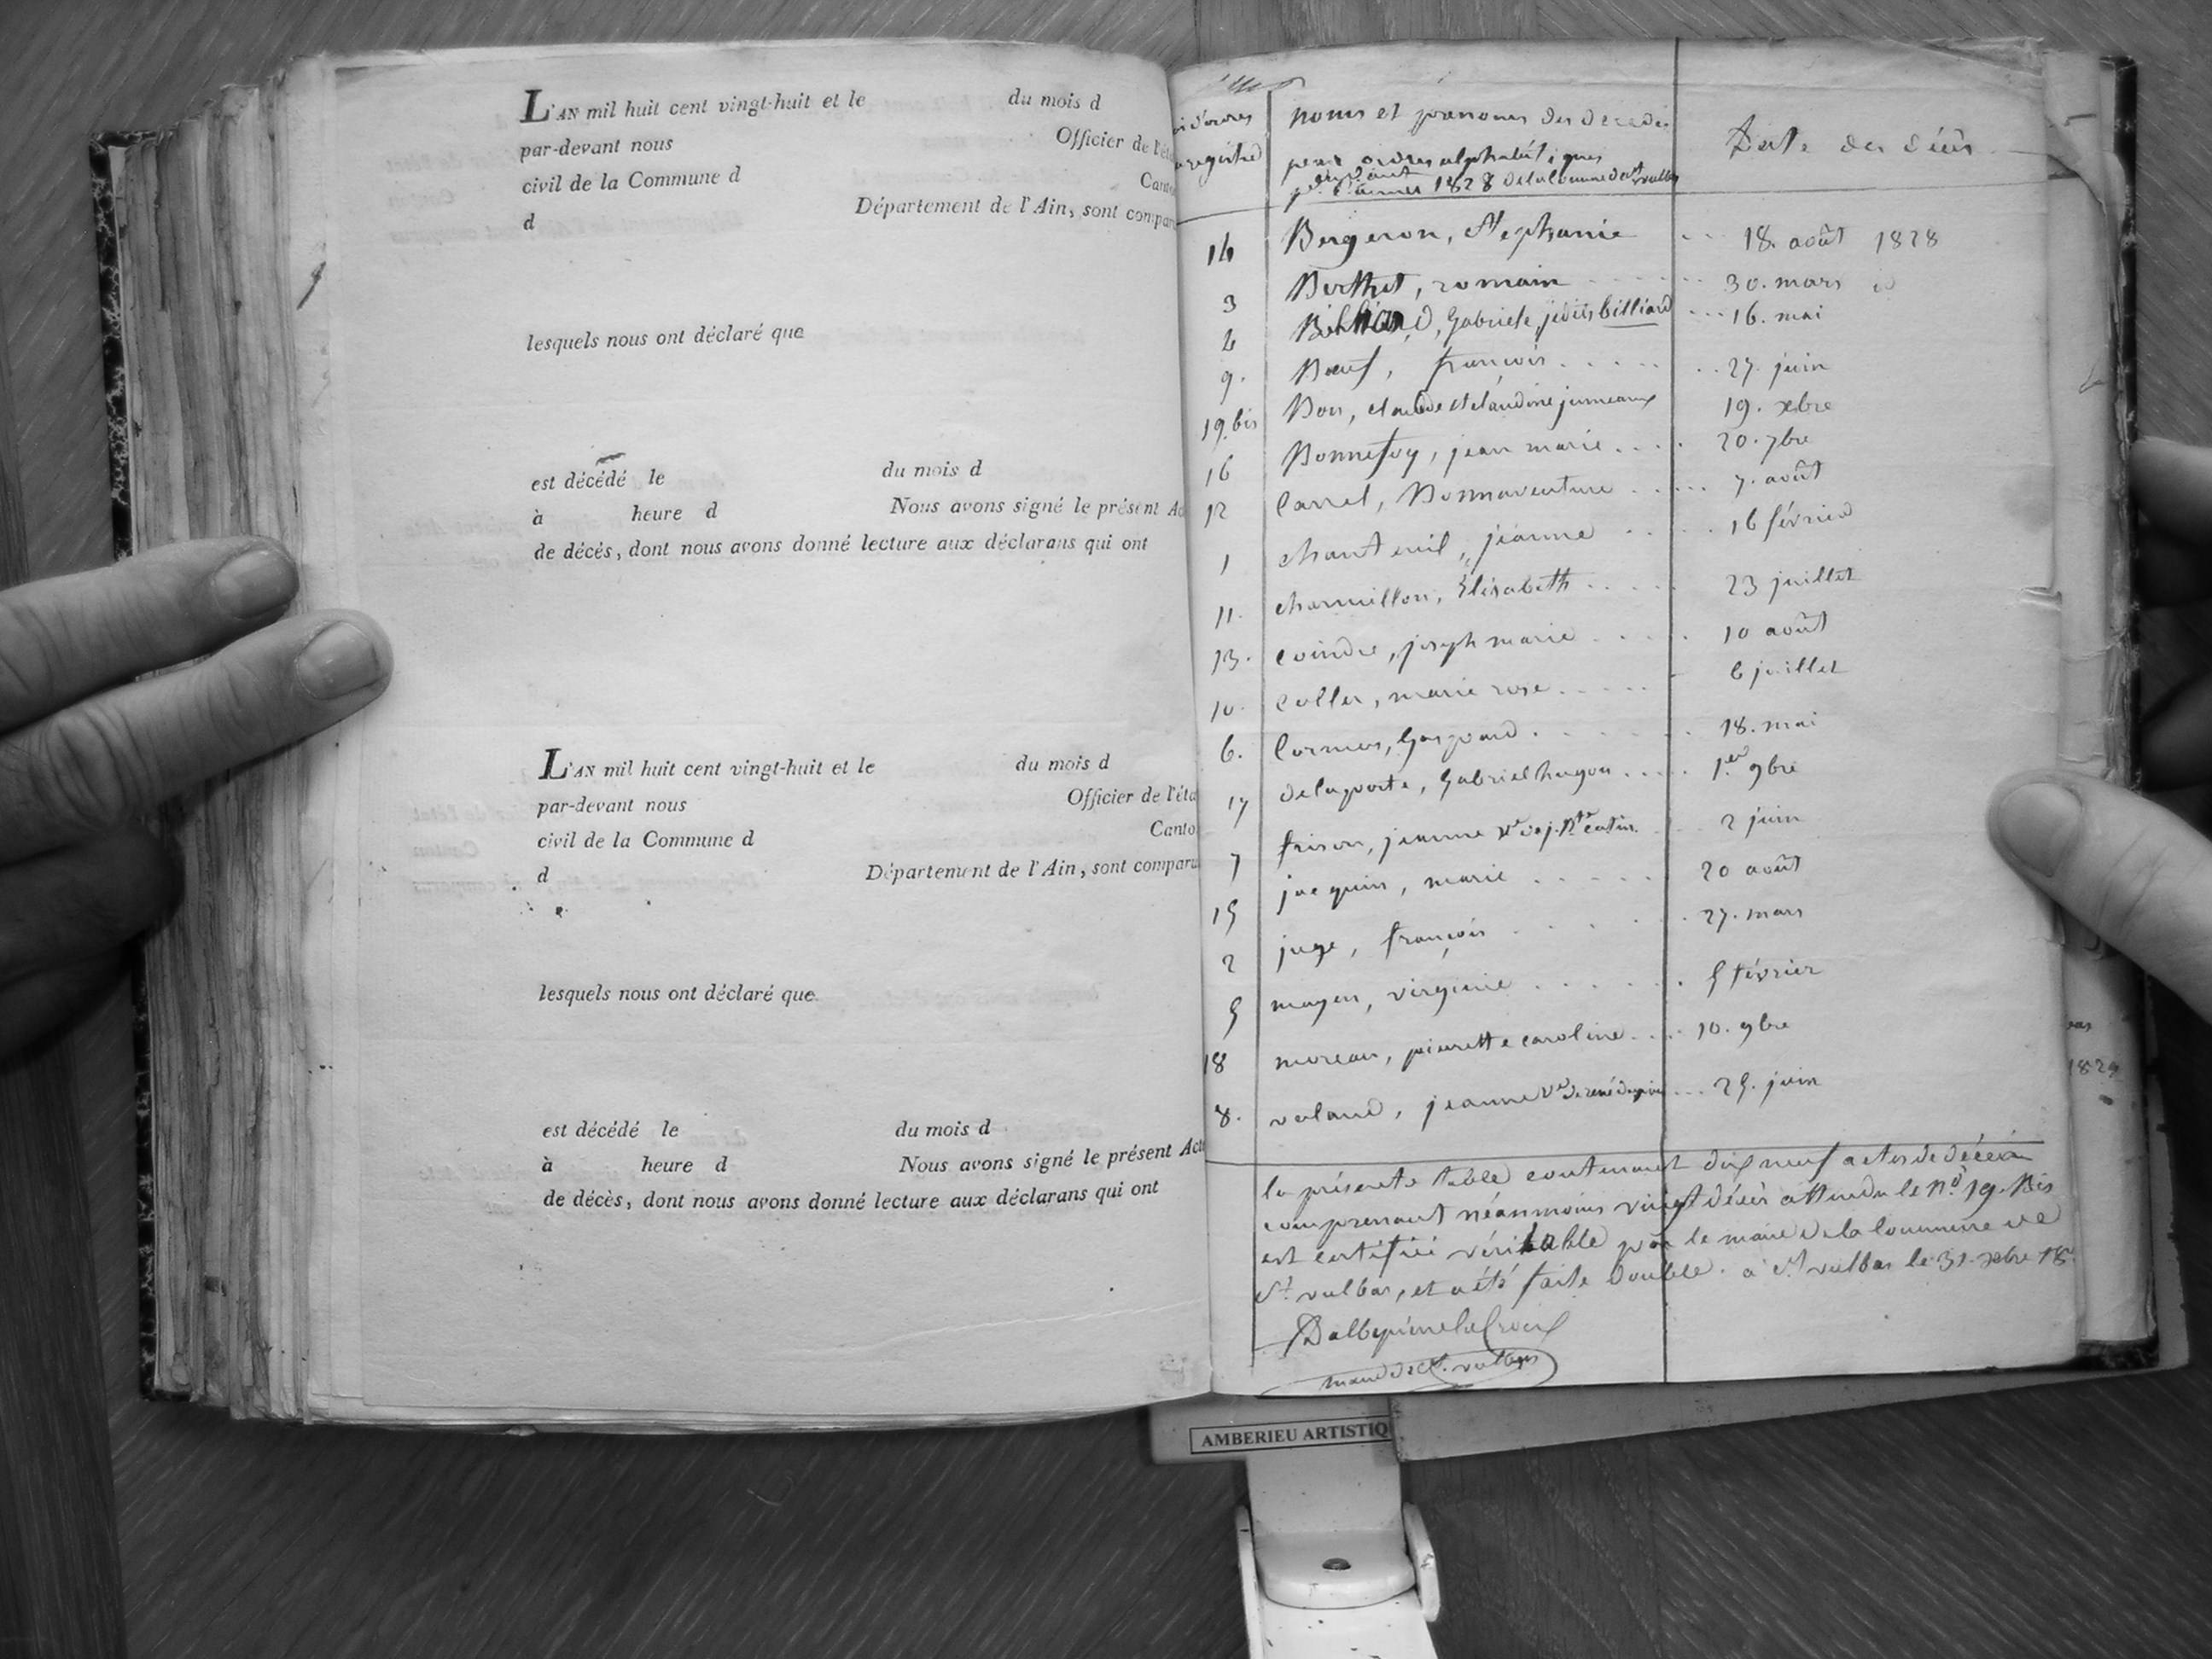 L'AN mil huit cent vingt-huit et le du mois d
par-devant nous Officier de l'éta
civil de la Commune d Canto
d Département de l'Ain, sont compar
lesquels nous ont déclaré que
est décédé le du mois d
à heure d Nous avons signé le présent Ac
de décès, dont nous avons donné lecture aux déclarans qui ont
L'AN mil huit cent vingt-huit et le du mois d
par-devant nous Officier de l'éta
civil de la Commune d Canto
d Département de l'Ain, sont comparu
lesquels nous ont déclaré que
est décédé le du mois d
à heure d Nous avons signé le présent Acte
de décès, dont nous avons donné lecture aux déclarans qui ont
noms et prenoms des décédés Date des décès
par ordres alphabétiques
1828 de la Commune de St vulbas
14 Bergeron, Stephanie 18. août 1828
3 Berthet, romain 30. mars id
4 Billiard, Gabriele, je dis billiard 16. mai
9. Bœuf, françois 27. juin
19. bis Bon, claude et claudine jumeaux 19. xbre
16 Bonnefoy, jean marie 20. 7bre
12 Carrel, Bonnaventure 7. août
1 chanteuil, jeanne 16 février
11. charmillon, Elisabeth 23 juillet
13. Coindre, joseph marie 10 août
10. Collet, marie rose 6 juillet
6. Cormier, Gaspard 18. mai
17 delaporte, Gabriel hugon 1.er 9bre
7 frison, jeanne 2 juin
15 jacquin, marie 20 août
2 juge, françois 27. mars
5 moyen, virginie 5 février
18 moreau, pierrette caroline 10. 9bre
8. voland, jeanne Ve de rené 25. juin
la présente table contenant dix neuf actes de décès
comprenant néanmoins vingt décès attendu le n.o 19. Bis
est certifiée véritable par le maire de la Commune de
St. vulbas, et a été faite Double. a St vulbas le 31. xbre 18
maire de St. vulbas
1829
AMBERIEU ARTISTIQ